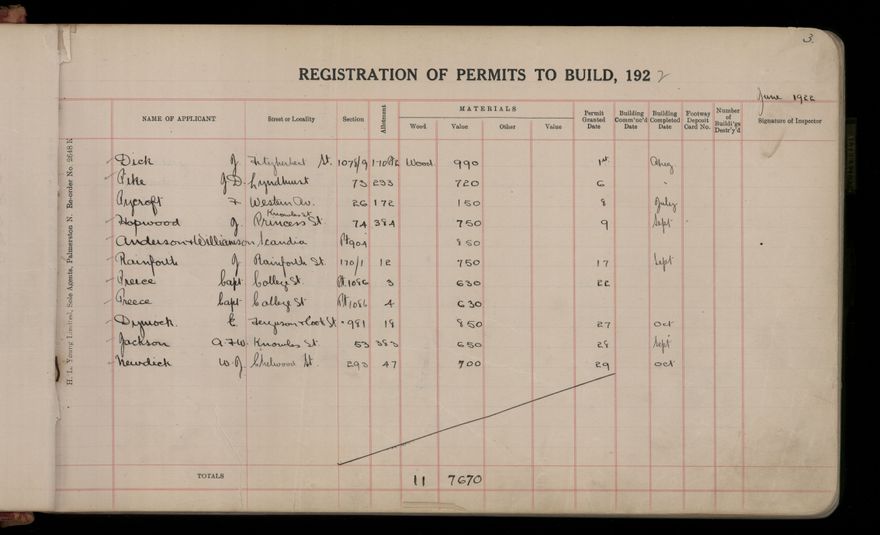 3.
REGISTRATION OF PERMITS TO BUILD, 1922
June 1922
NAME OF APPLICANT Street or Locality Section Allotment MATERIALS Wood Value Other Value Permit Granted Date Building Comm'nc'd Date Building Completed Date Footway Deposit Card No. Number of Buildi'gs Destr'y'd Signature of Inspector
Dick J. Fitzherbert St. 1078/9 Wood 990 1st Aug
Pike J.D. Lyndhurst 73 233 720 6 "
Pycroft F. Western Av. 26 172 150 8 July
Knowles St.
Hopwood J. Princess St. 74 384 750 9 Sept
Anderson & Williamson Scandia Pt 904 850
Rainforth J Rainforth St. 170/1 12 750 17 Sept
Preece Capt College St. Pt 1086 3 630 22
Preece Capt College St Pt 1086 4 630
Dymock E. Ferguson & Cook St 981 18 850 27 Oct
Jackson A.F.W. Knowles St. 53 383 650 28 Sept
Newdick W.J. Chelwood St. 293 47 700 29 Oct
TOTALS 11 7670
H. L. Young Limited, Sole Agents, Palmerston N. Re-order No. 2648 N